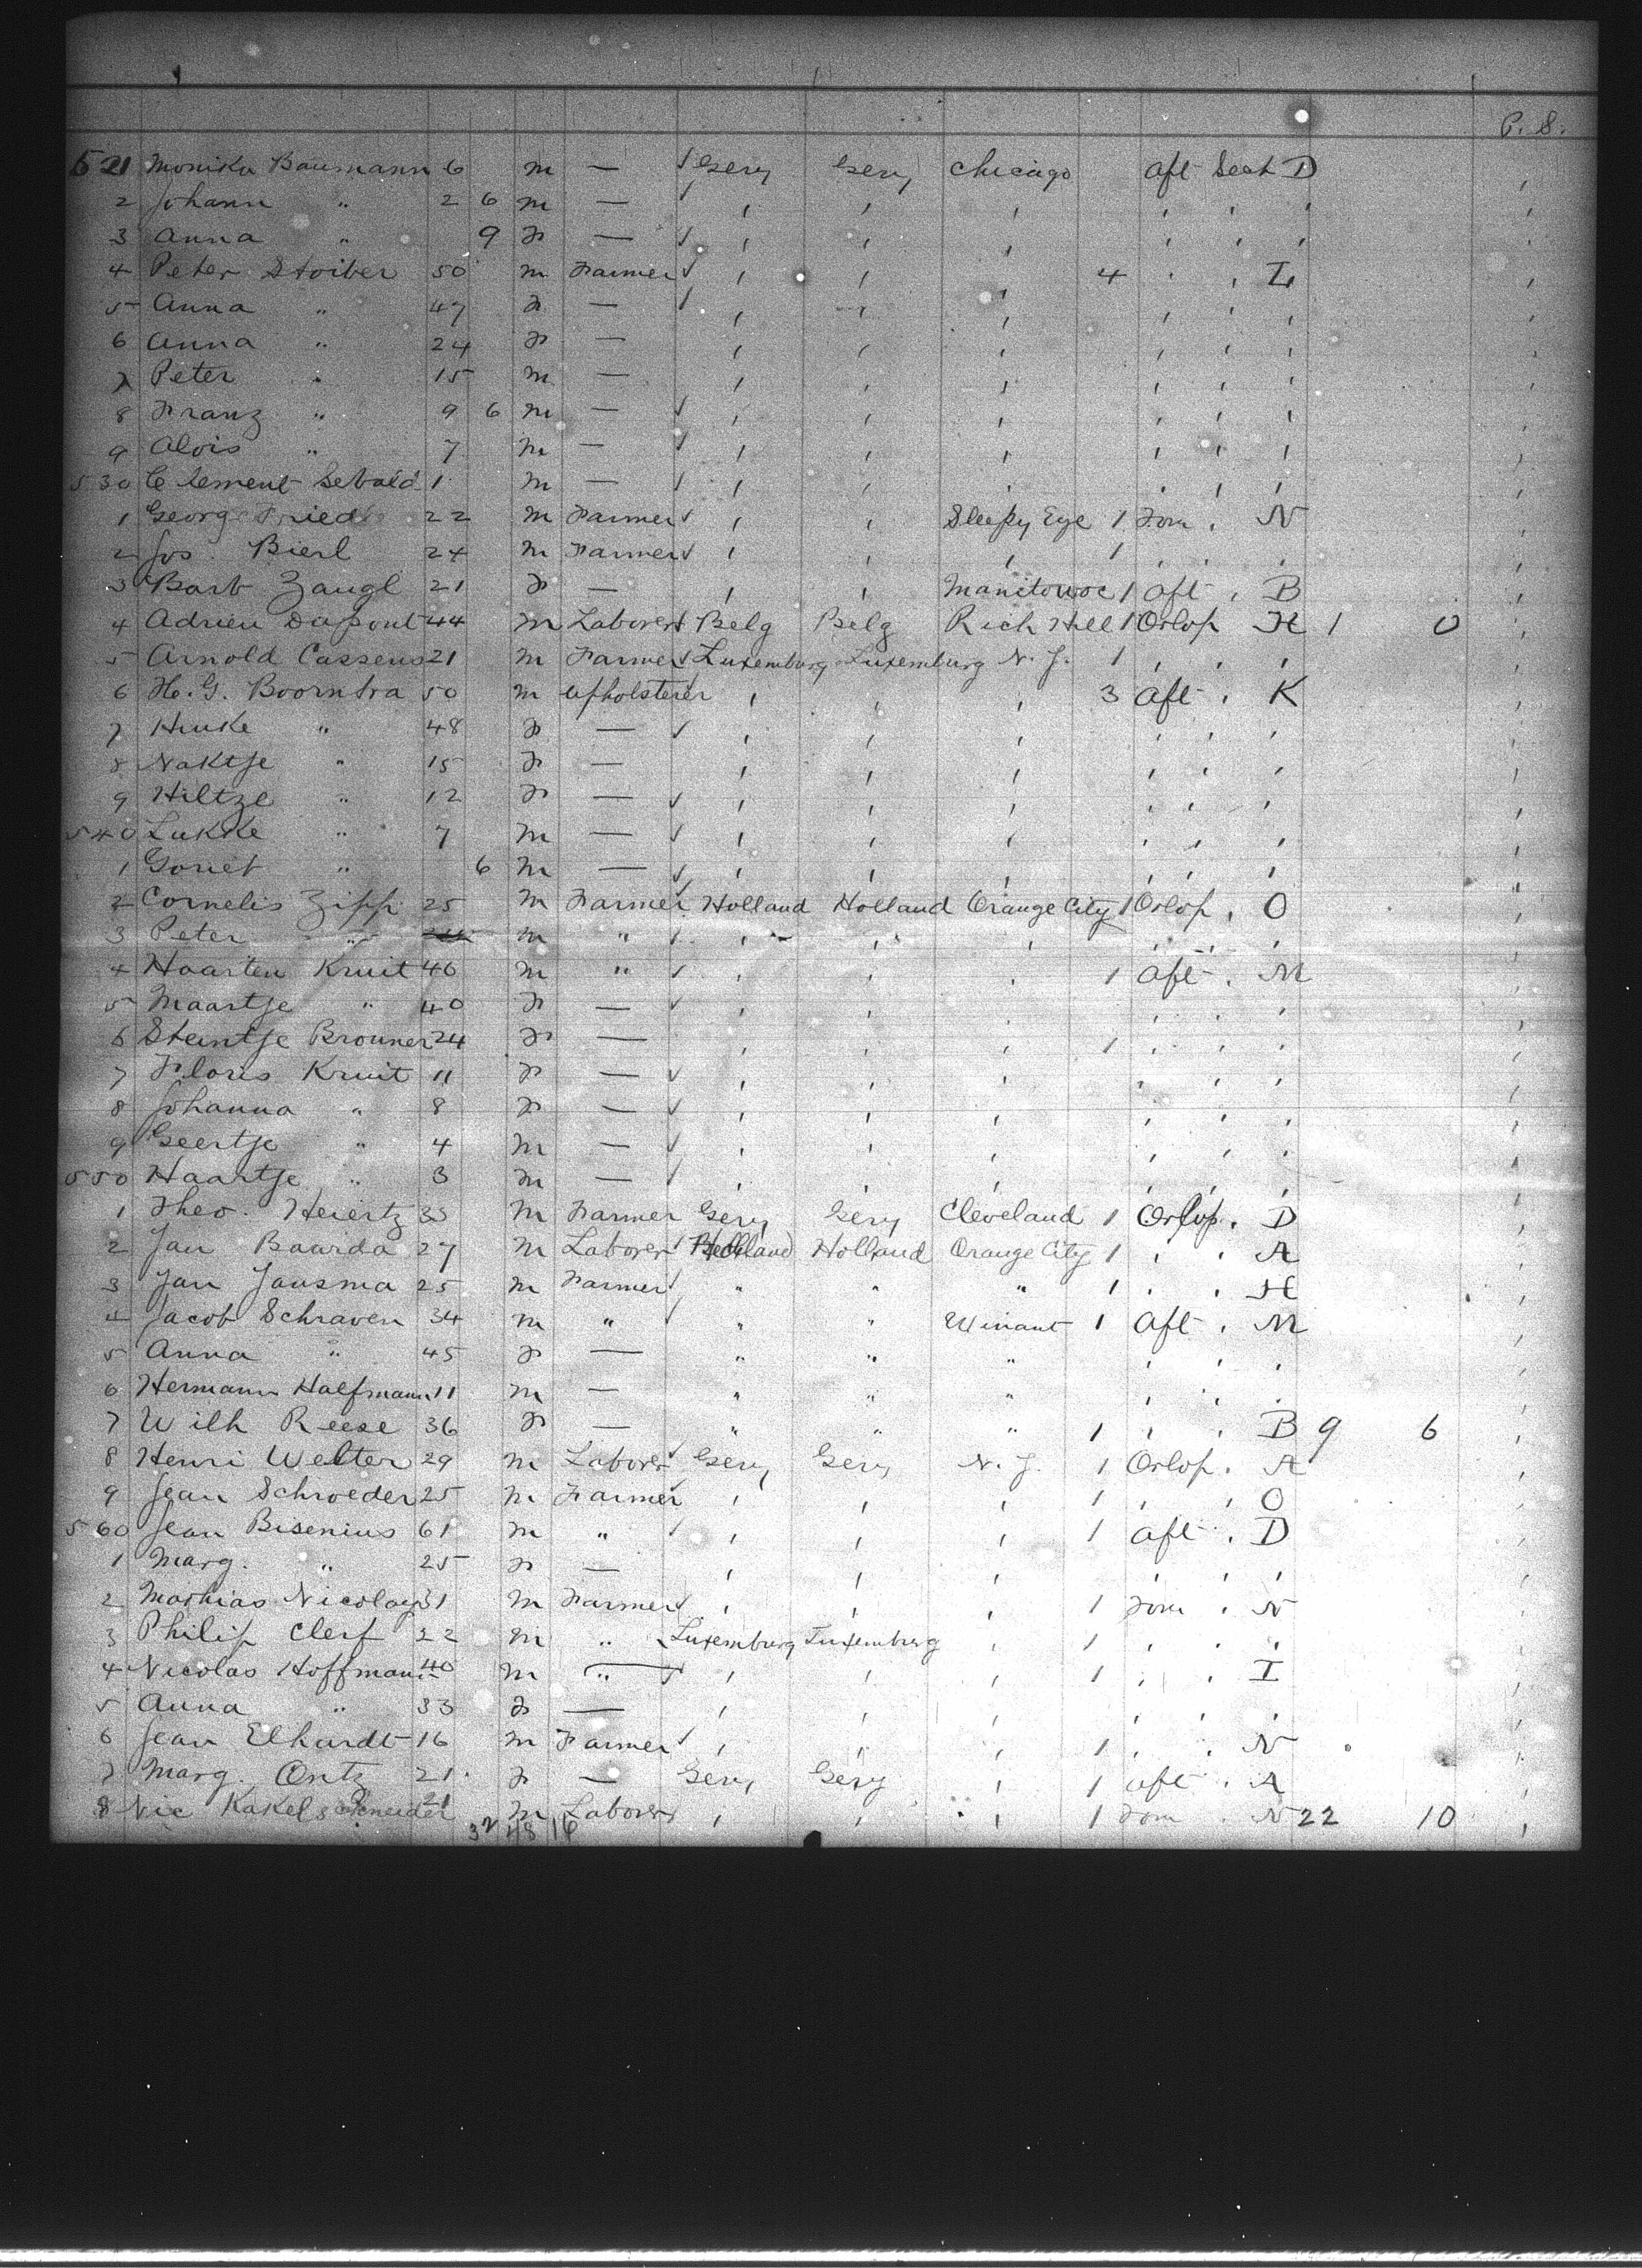 P. S.
521 Monika Baumann 6 m — √ Gery Gery Chicago aft Sect D
2 Johann " 2 6 m — √ , , , , , , ,
3 Anna " 9 F — √ , , , , , , ,
4 Peter Stoiber 50 m Farmer √ , , 4 , , L ,
5 Anna " 47 F — √ , , , , , , ,
6 Anna " 24 F — , , , , , , ,
7 Peter " 15 m — , , , , , , ,
8 Franz " 9 6 m — √ , , , , , , ,
9 Alois " 7 m — √ , , , , , , ,
530 Clement Sebald 1 m — √ , , , , , , ,
1 Georg Fried 22 m Farmer √ , , Sleepy Eye 1 For , N ,
2 Jos. Bierl 24 m Farmer √ , , , 1 , , , ,
3 Barb Zaugl 21 F — , , Manitowoc 1 aft , B ,
4 Adrien Dapont 44 m Laborer √ Belg Belg Rich Hill 1 Orlop H 1 0 ,
5 Arnold Cassens 21 m Farmer √ Luxemburg Luxemburg N. J. 1 , , , ,
6 H. G. Boorntra 50 m Upholsterer , , , 3 aft , K ,
7 Hinke " 48 F — √ , , , , , , ,
8 Naktje " 15 F — , , , , , , ,
9 Hiltze " 12 F — √ , , , , , , ,
540 Lukke " 7 m — √ , , , , , , ,
1 Goriet " 6 m — √ , , , , , , ,
2 Cornelis Zipp 25 m Farmer Holland Holland Orange City 1 Orlop , O ,
3 Peter " m " √ , , , , , , ,
4 Haarten Kruit 46 m " √ , , , 1 aft , M ,
5 Maartje " 40 F — √ , , , , , , ,
6 Steintje Brouner 24 F — , , , 1 , , , ,
7 Floris Kruit 11 F — √ , , , , , , ,
8 Johanna " 8 F — √ , , , , , , ,
9 Geertje " 4 m — √ , , , , , , ,
550 Haartje " 3 m — √ , , , , , , ,
1 Theo. Heiertz 33 m Farmer Gery Gery Cleveland 1 Orlop , D ,
2 Jan Baarda 27 m Laborer √ Holland Holland Orange City 1 , , A ,
3 Jan Jansma 25 m Farmer √ " " " 1 , , H ,
4 Jacob Schraven 34 m " √ " " Winant 1 aft , M ,
5 Anna " 45 F — " " " , , , ,
6 Hermann Halfmann 11 m — " " " , , , ,
7 Wilh Reese 36 F — " " " 1 , , B 9 6 ,
8 Henri Welter 29 m Laborer √ Gery Gery N. J. 1 Orlop , A ,
9 Jean Schroeder 25 m Farmer , , , 1 , , O ,
560 Jean Bisenius 61 m " √ , , , 1 aft , D ,
1 Marg. " 25 F — , , , , , , ,
2 Mathias Nicolay 31 m Farmer √ , , , 1 For , N ,
3 Philip Clerf 22 m " √ Luxemburg Luxemburg , 1 , , , ,
4 Nicolas Hoffmann 40 m " √ , , , 1 , , I ,
5 Anna " 33 F — , , , , , , ,
6 Jean Elhardt 16 m Farmer √ , , , 1 , , N ,
7 Marg. Ontz 21 F — Gery Gery , 1 aft , A ,
8 Nic Kakelschneider 21 m Laborer , , , 1 For , N 22 10 ,
32 48 16